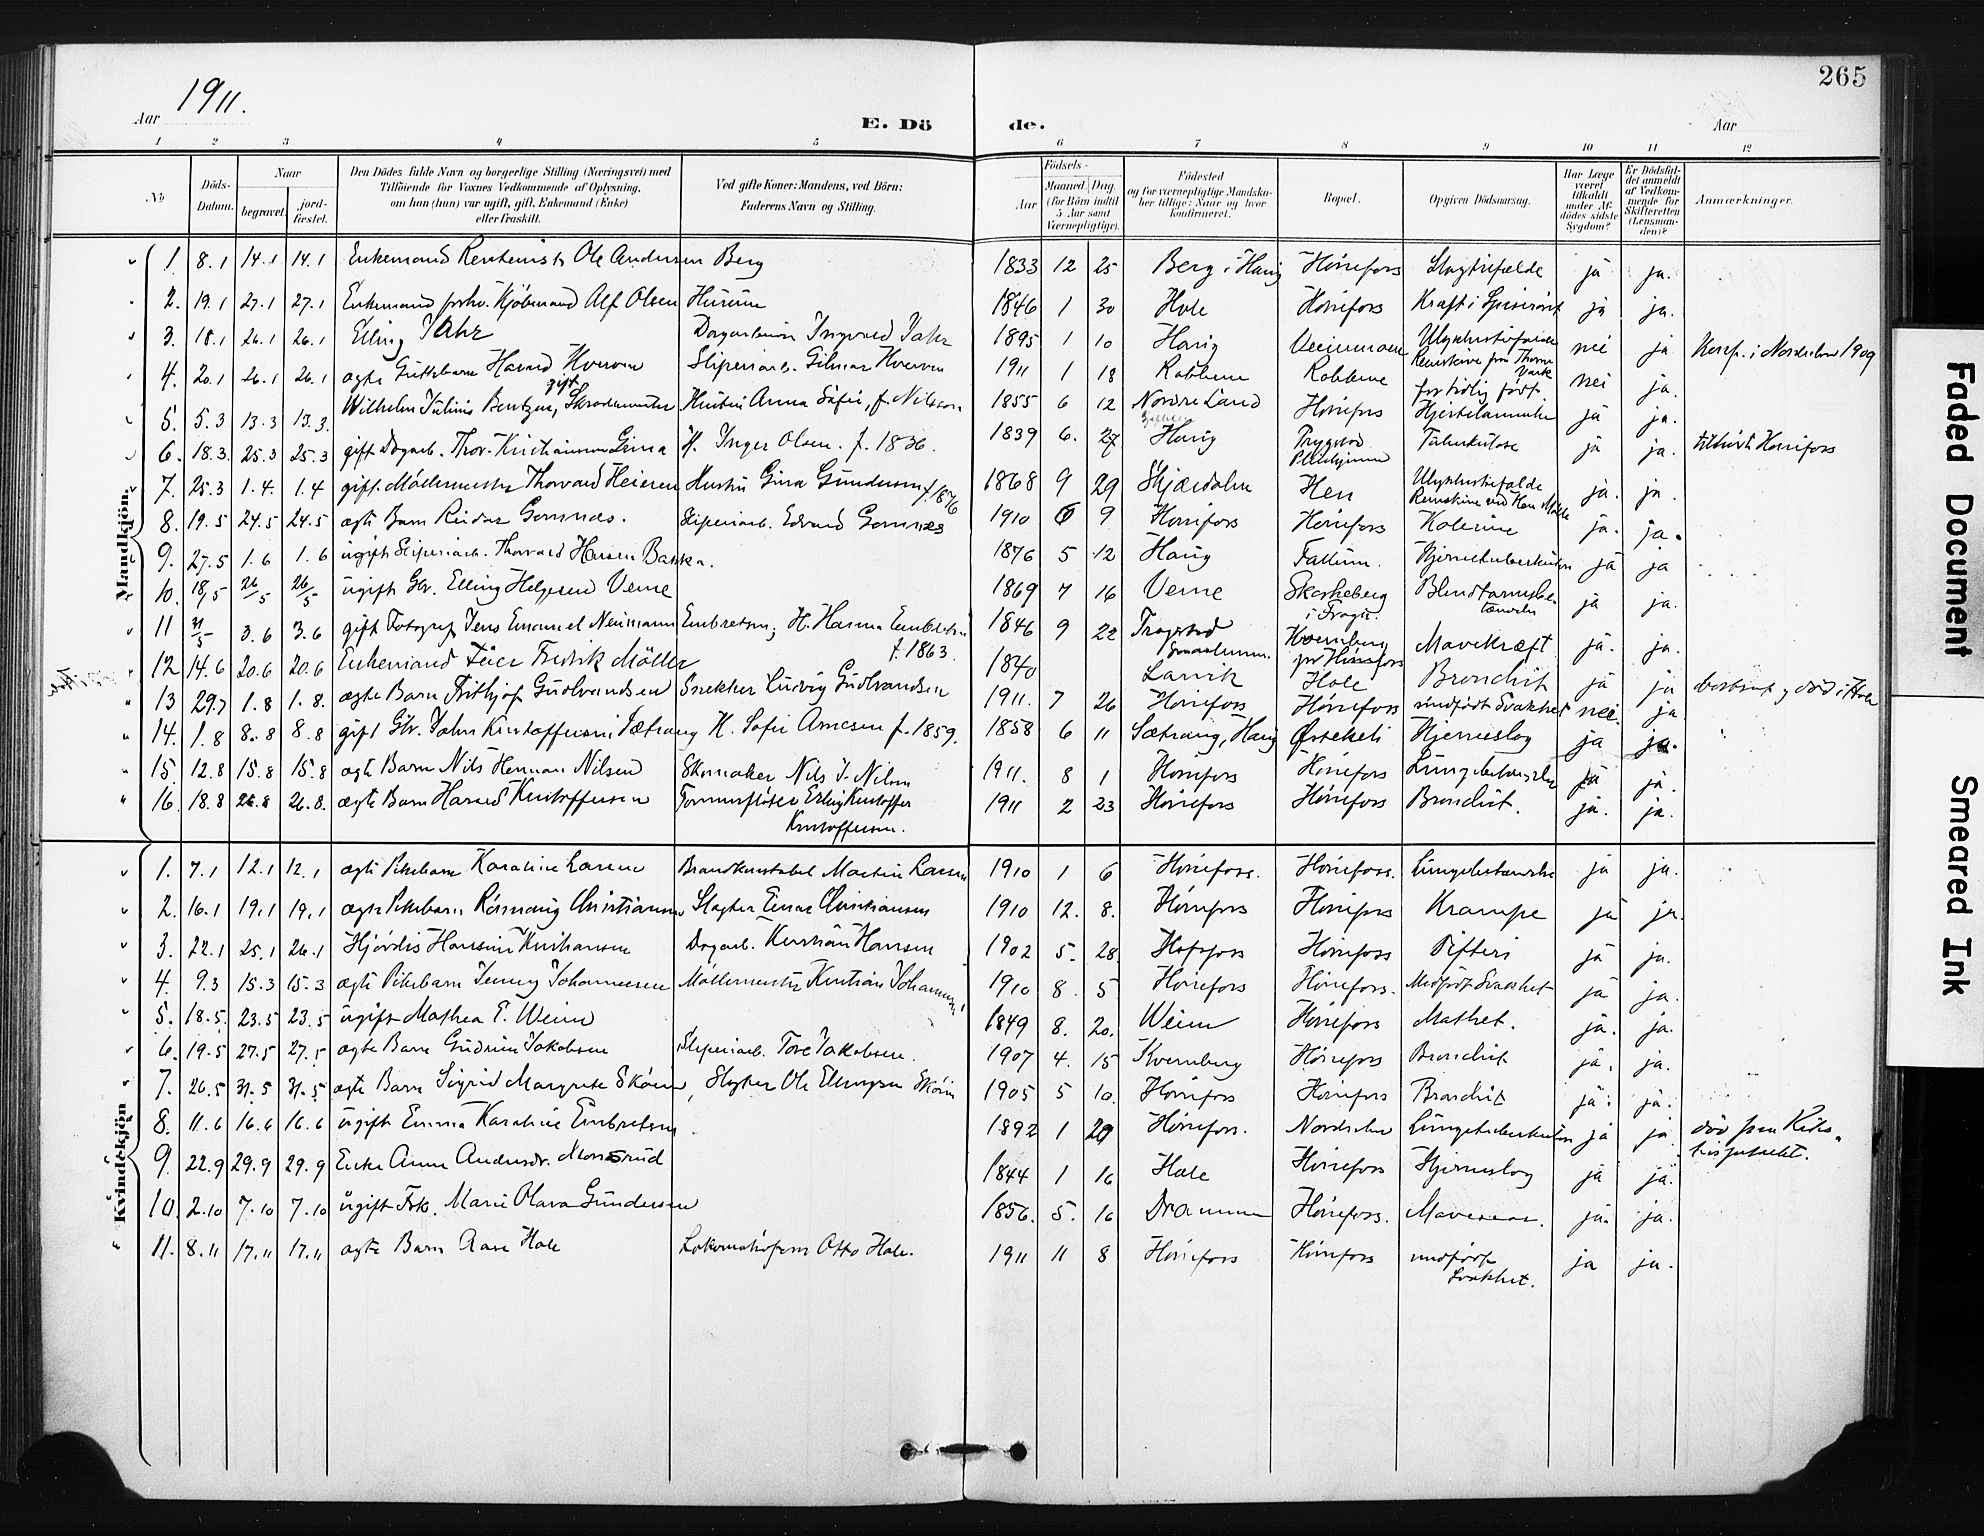 265
1911.
Aar
E. Dö de.
Aar
1 2 3 4 5 6 7 8 9 10 11 12
No
Döds-Datum.
Naar
begravet.
jord-fæstet.
Den Dödes fulde Navn og borgerlige Stilling (Næringsvei) med
Tilföiende for Voxnes Vedkommende af Oplysning,
om han (hun) var ugift, gift, Enkemand (Enke)
eller fraskilt.
Ved gifte Koner: Mandens, ved Börn:
Faderens Navn og Stilling.
Födsels-
Aar
Maaned. Dag.
(for Börn indtil
5 Aar samt
Værnepligtige).
Födested
og for værnepligtige Mandska-
ber tillige: Naar og hvor
konfirmeret.
Bopæl.
Opgiven Dödsaarsag.
Har Læge
været
tilkaldt
under Af-
dödes sidste
Sygdom?
Er Dödsfal-
det anmeldt
af Vedkom-
mende for
Skifteretten
(Lensman-
den)?
Anmærkninger.
Mandkjön.
1. 8.1 14.1 14.1 Enkemand Rentenist Ole Andersen Berg 1833 12 25 Berg i Haug Hønefoss Slagtilfælde ja ja.
2. 19.1 27.1 27.1 Enkemand forhv. Kjøbmand Alf Olsen Hurum 1846 1 30 Hole Hønefoss Kræft i Spiserøret ja ja.
3. 18.1 26.1 26.1 Elling Jahr Dagarbeider Ingvald Jahr 1895 1 10 Haug Veienmoen Ulykkestilfælde nei ja i Norderhov 1909
4. 20.1 26.1 26.1 ægte Guttebarn Harald Hverven Sliperiarb. Hilmar Hverven 1911 1 18 Rabberne Rabberne for tidlig født nei ja.
5. 5.3 13.3 13.3. Wilhelm Julius Bentzen, gift Skredermester Hustru Anna Sofie, f. Nilsen 1855 6 12 Nordre Land Hønefoss Hjertelammelse ja ja.
6. 18.3. 25.3 25.3 gift Dagarb. Thor Kristiansen H. Inger Olsen f. 1836. 1839 6. 27 Haug Trygstad Pleiehjem Tuberkulose ja ja. tilhørte Hønefoss
7. 25.3 1.4. 1.4 gift Møllemester Thorvald Heieren Hustru Gina Gundersen f. 1876 1868 9 29 Skjærdalen Hen Ulykkestilfælde ja. ja.
8. 19.5 24.5 24.5 ægte Barn Reidar Gomnæs. Sliperiarb. Edvard Gomnæs 1910 9 Hønefoss Hønefoss Kolerine ja. ja.
9. 27.5 1.6 1.6 ugift Sliperiarb. Thorvald Hansen Bakka. 1876 5 12 Haug Fallum. Hjernetuberkulose ja ja
10. 18/5 26/5 26/5 ugift Gbr. Elling Helgesen Verne 1869 7 16 Verne ja ja.
11 31/5 3.6 3.6 gift Fotograf Jens Emanuel Neumann Embretsen; H. Hanna Embretsen f. 1863. 1846 9 22 Trøgstad Smaalenene. Hverrnberg pr Hønefoss Mavekræft ja. ja.
12 14.6 20.6 20.6 Enkemand Fredrik Möller 1840 Larvik Hole Bronchit ja ja bortsat og død i Hole
13 29.7 1.8 1.8. ægte Barn Frithjof Gudbrandsen Snekker Ludvig Gudbrandsen 1911. 7 26 Hønefoss Hønefoss medfødt Svakhet nei. ja.
14. 1.8 8.8 8.8 gift Gbr. Johan Kristoffersen Sætrang H. Sofie Arnesen f. 1859. 1858 6 11 Sætrang, Haug Østekeli Hjerneslag ja ja.
15. 12.8 15.8 15.8 ægte Barn Nils Herman Nilsen Skomaker Nils J. Nilsen 1911. 8 1 Hønefoss Hønefoss Lungebetændelse ja ja.
16. 18.8 26.8 26.8. ægte Barn Harald Kristoffersen Tømmerfløter Erling Kristoffer Kristoffersen. 1911 2 23 Hønefoss Hønefoss Bronchit. ja. ja.
Kvindekjön
1. 7.1 12.1 12.1 ægte Pikebarn Karoline Larsen Brandkonstabel Martin Larsen 1910 1 6 Hønefoss. Hønefoss. Lungebetændelse ja ja.
2. 16.1 19.1 19.1 ægte Pikebarn Rønnaug Christiansen Slagter Einar Christiansen 1910 12. 8. Hønefoss Hønefoss Krampe ja ja.
3. 22.1 25.1 26.1 Hjørdis Hansine Kristiansen Dagarb. Kristian Hansen 1902 5. 28. Hofsfoss Hønefoss Difteri ja ja.
4. 9.3 15.3 15.3 ægte Pikebarn Jenny Johannesen Møllemester Kristian Johannesen 1910 8. 5 Hønefoss Hønefoss. Medfødt Svakhet ja ja.
5. 18.5. 23.5 23.5 ugift Mathea E. Weien 1849 8. 20. Weien Hønefoss Mathet. ja. ja.
6. 19.5 27.5 27.5 ægte Barn Gudrun Jakobsen Sliperiarb. Tore Jakobsen. 1907 4. 15 Kvernberg Hønefoss Bronchit ja. ja.
7. 26.5 31.5 31.5 ægte Barn Sigrid Margrete Skøien, Slagter Ole Ellingsen Skøien 1905 5 10. Hønefoss Hønefoss Bronchit ja. ja.
8. 11.6 16.6 16.6 ugift Emma Karoline Embretsen 1892 1 29 Hønefoss. Norderhov Lungetuberkulose ja ja død paa Riks-
hospitalet.
9. 22.9 29.9 29.9 Enke Anne Andersdr. Monserud 1844 1 16 Hole Hønefoss Hjerneslag ja ja.
10. 2.10 7.10 7.10 ugift Frk. Marie Olava Gundersen 1856. 5. 16 Drammen Hønefoss. ja. ja.
11. 8.11 17.11 17.11 ægte Barn Aase Hole Lokomotivfører Otto Hole. 1911 11 8 Hønefoss Hønefoss medfødt Svakhet. ja ja.
Faded Document
Smeared Ink